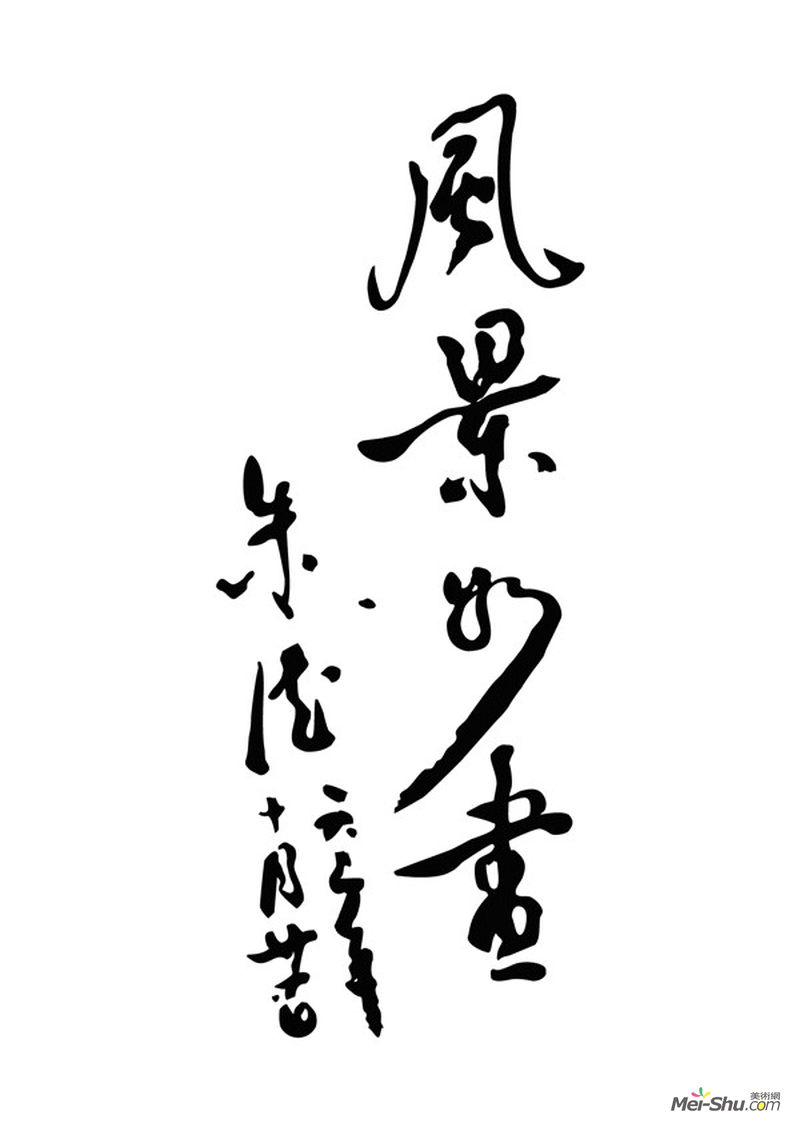 風景如畫
朱德
六三年
十月廿日
美術網
Mei-Shu.com